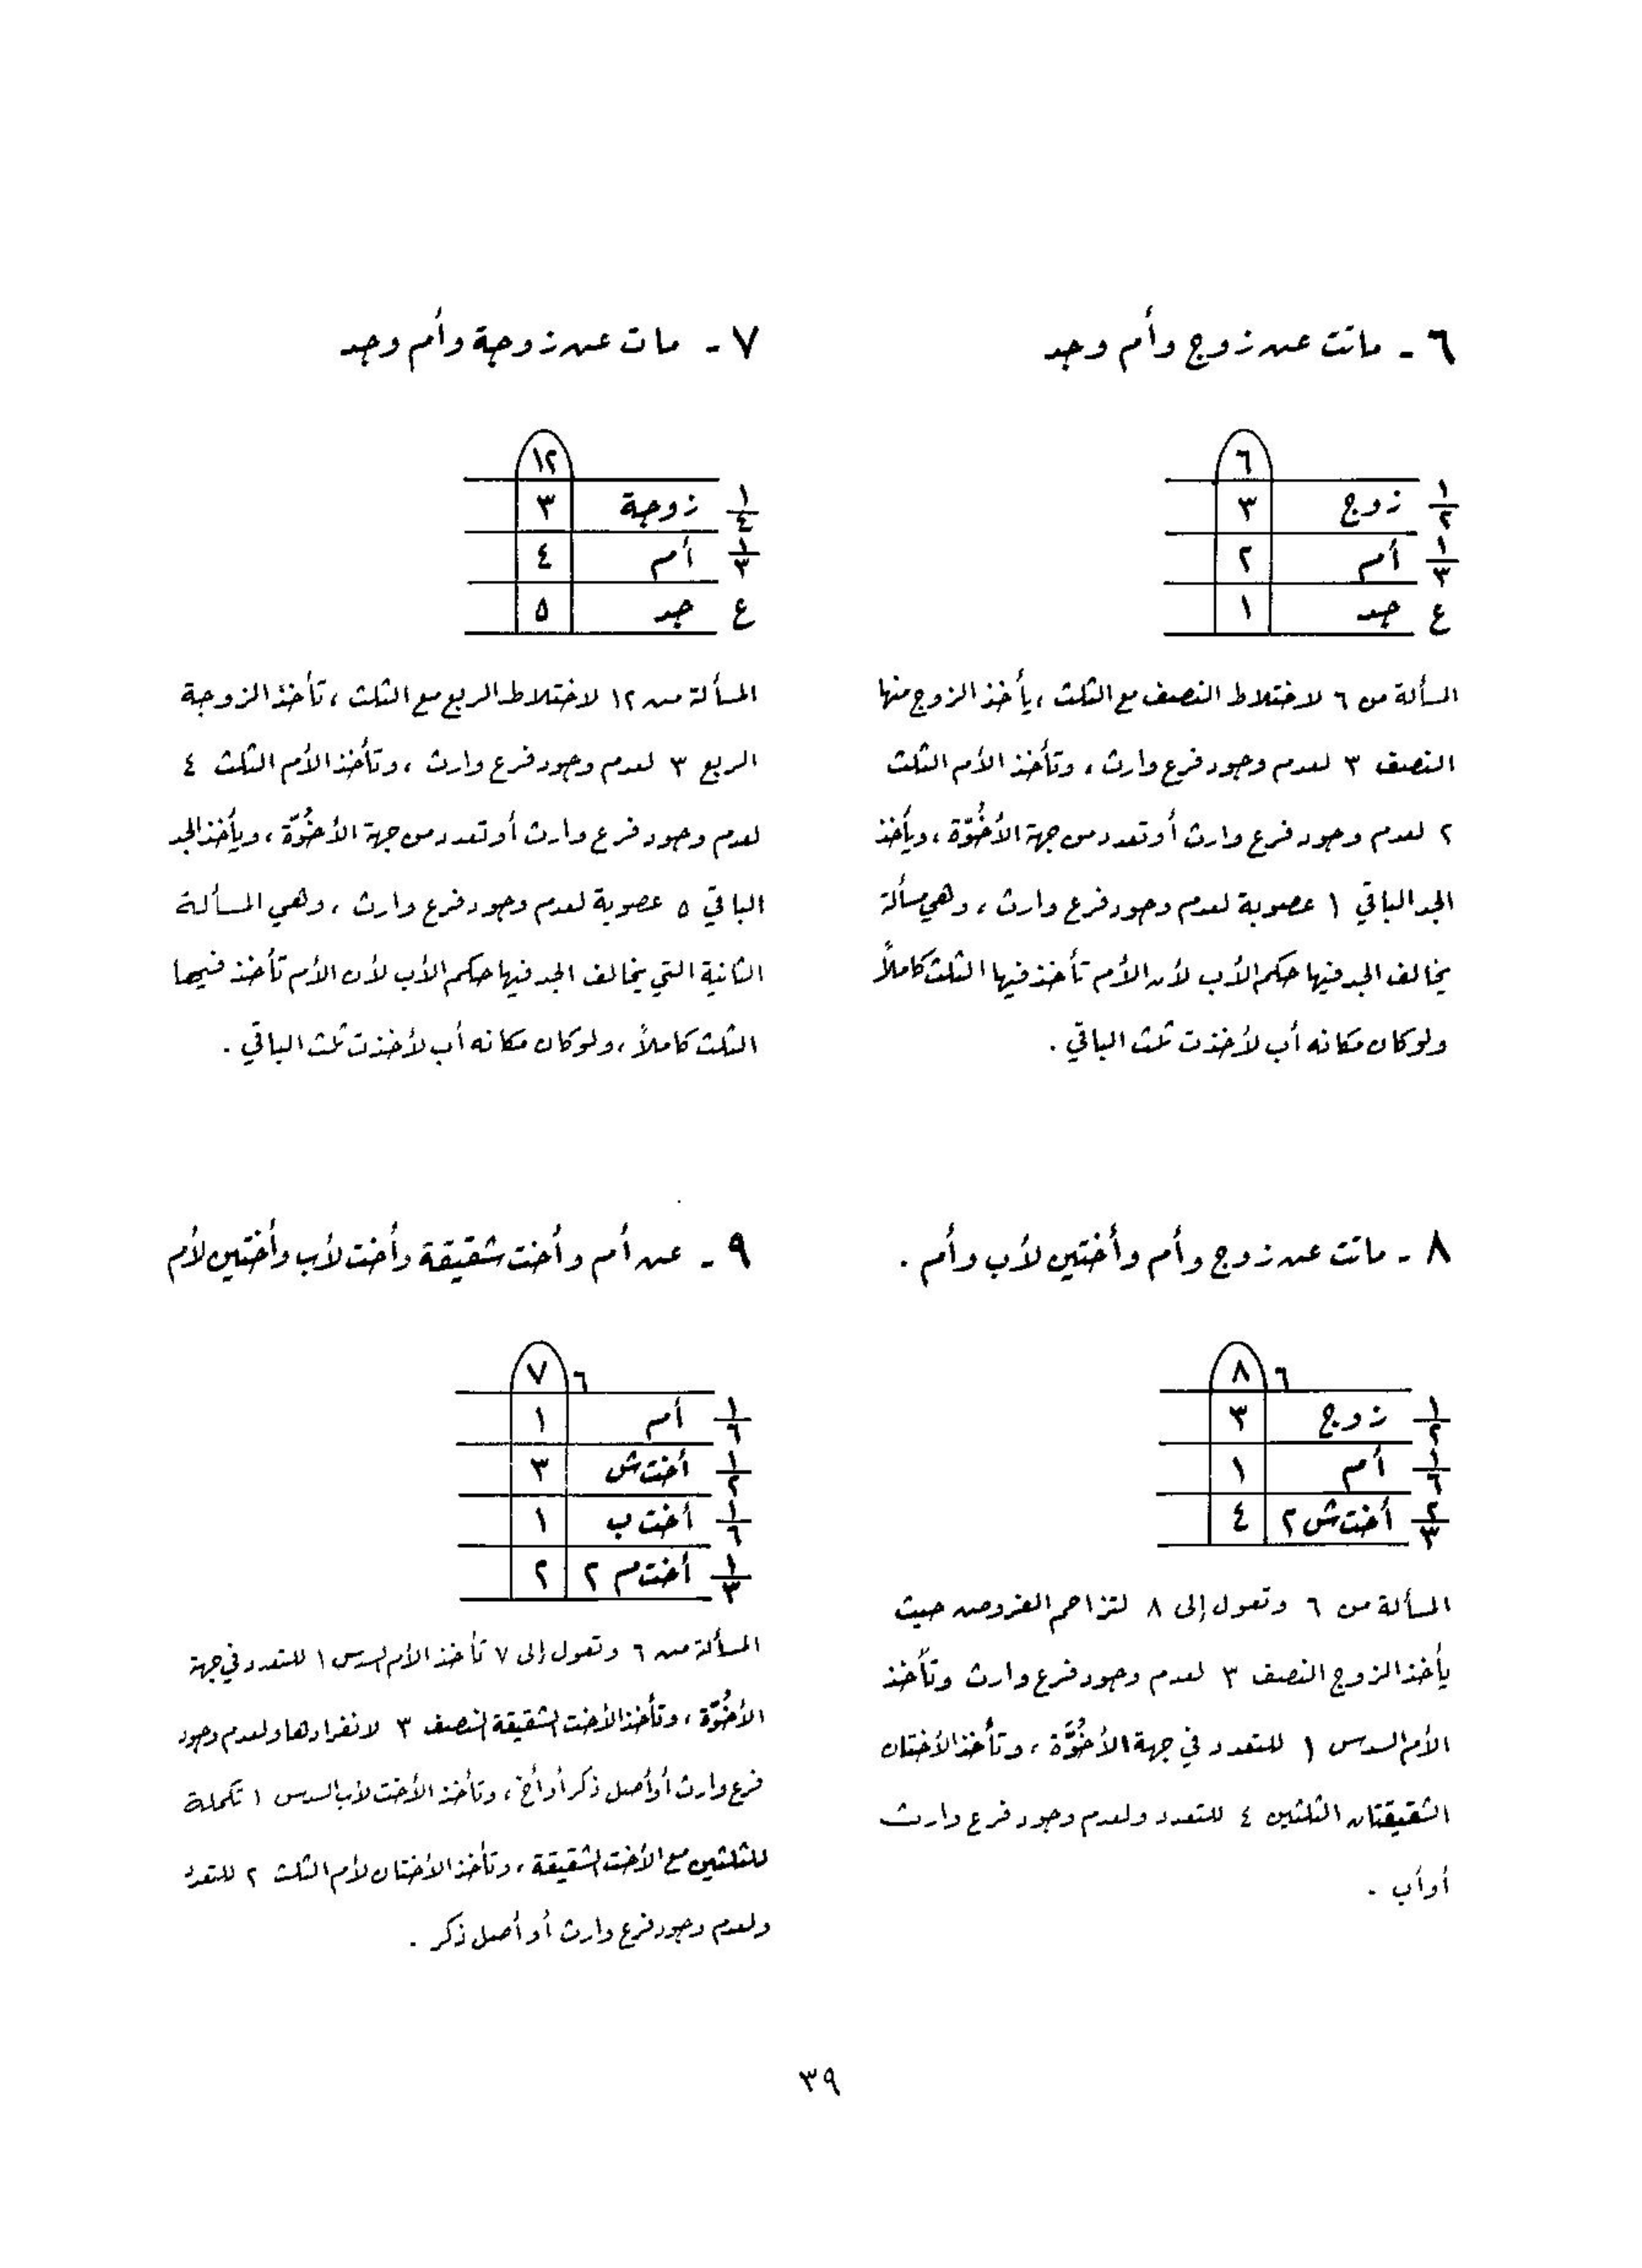 ٦ - ماتت عن زوج وأم وجد
٦
١/٢ زوج ٣
١/٣ أم ٢
ع جد ١
المسألة من ٦ لاختلاط النصف مع الثلث ، يأخذ الزوج منها
النصف ٣ لعدم وجود فرع وارث ، وتأخذ الأم الثلث
٢ لعدم وجود فرع وارث أو تعدد من جهة الأخُوّة ، ويأخذ
الجد الباقي ١ عصوبة لعدم وجود فرع وارث ، وهي مسألة
يخالف الجد فيها حكم الأب لأن الأم تأخذ فيها الثلث كاملاً
ولو كان مكانه أب لأخذت ثلث الباقي .
٧ - مات عن زوجة وأم وجد
١٢
١/٤ زوجة ٣
١/٣ أم ٤
ع جد ٥
المسألة من ١٢ لاختلاط الربع مع الثلث ، تأخذ الزوجة
الربع ٣ لعدم وجود فرع وارث ، وتأخذ الأم الثلث ٤
لعدم وجود فرع وارث أو تعدد من جهة الأخُوّة ، ويأخذ الجد
الباقي ٥ عصوبة لعدم وجود فرع وارث ، وهي المسألة
الثانية التي يخالف الجد فيها حكم الأب لأن الأم تأخذ فيها
الثلث كاملاً ، ولو كان مكانه أب لأخذت ثلث الباقي .
٨ - ماتت عن زوج وأم وأختين لأب وأم .
٦ ٨
١/٢ زوج ٣
١/٦ أم ١
٢/٣ أخت ش ٢ ٤
المسألة من ٦ وتعول إلى ٨ لتزاحم الفروض حيث
يأخذ الزوج النصف ٣ لعدم وجود فرع وارث وتأخذ
الأم السدس ١ للتعدد في جهة الأخُوَّة ، وتأخذ الأختان
الشقيقتان الثلثين ٤ للتعدد ولعدم وجود فرع وارث
أو أب .
٩ - عن أم وأخت شقيقة وأخت لأب وأختين لأم
٦ ٧
١/٦ أم ١
١/٢ أخت ش ٣
١/٦ أخت ب ١
١/٣ أخت م ٢ ٢
المسألة من ٦ وتعول إلى ٧ تأخذ الأم السدس ١ للتعدد في جهة
الأخُوّة ، وتأخذ الأخت الشقيقة النصف ٣ لانفرادها ولعدم وجود
فرع وارث أو أصل ذكر أو أخ ، وتأخذ الأخت لأب السدس ١ تكملة
للثلثين مع الأخت الشقيقة ، وتأخذ الأختان لأم الثلث ٢ للتعدد
ولعدم وجود فرع وارث أو أصل ذكر .
٣٩